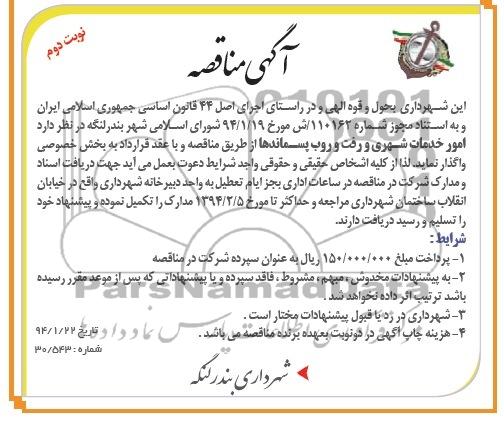 نوبت دوم
آگهی مناقصه
این شهرداری بحول و قوه الهی و در راستای اجرای اصل ۴۴ قانون اساسی جمهوری اسلامی ایران
و به استناد مجوز شماره ۱۱۰۱۶۲/ش مورخ ۹۴/۱/۱۹ شورای اسلامی شهر بندرلنگه در نظر دارد
امور خدمات شهری و رفت و روب پسماندها از طریق مناقصه و با عقد قرارداد به بخش خصوصی
واگذار نماید. لذا از کلیه اشخاص حقیقی و حقوقی واجد شرایط دعوت بعمل می آید جهت دریافت اسناد
و مدارک شرکت در مناقصه در ساعات اداری بجز ایام تعطیل به واحد دبیرخانه شهرداری واقع در خیابان
انقلاب ساختمان شهرداری مراجعه و حداکثر تا مورخ ۱۳۹۴/۲/۵ مدارک را تکمیل نموده و پیشنهاد خود
را تسلیم و رسید دریافت دارند.
شرایط :
۱- پرداخت مبلغ ۱۵۰/۰۰۰/۰۰۰ ریال به عنوان سپرده شرکت در مناقصه
۲- به پیشنهادات مخدوش ، مبهم ، مشروط ، فاقد سپرده و یا پیشنهاداتی که پس از موعد مقرر رسیده
باشد ترتیب اثر داده نخواهد شد .
۳- شهرداری در رد یا قبول پیشنهادات مختار است .
۴- هزینه چاپ آگهی در دو نوبت بعهده برنده مناقصه می باشد .
تاریخ ۹۴/۱/۲۲
شماره : ۳۰/۵۴۳
شهرداری بندرلنگه
ParsNamadData